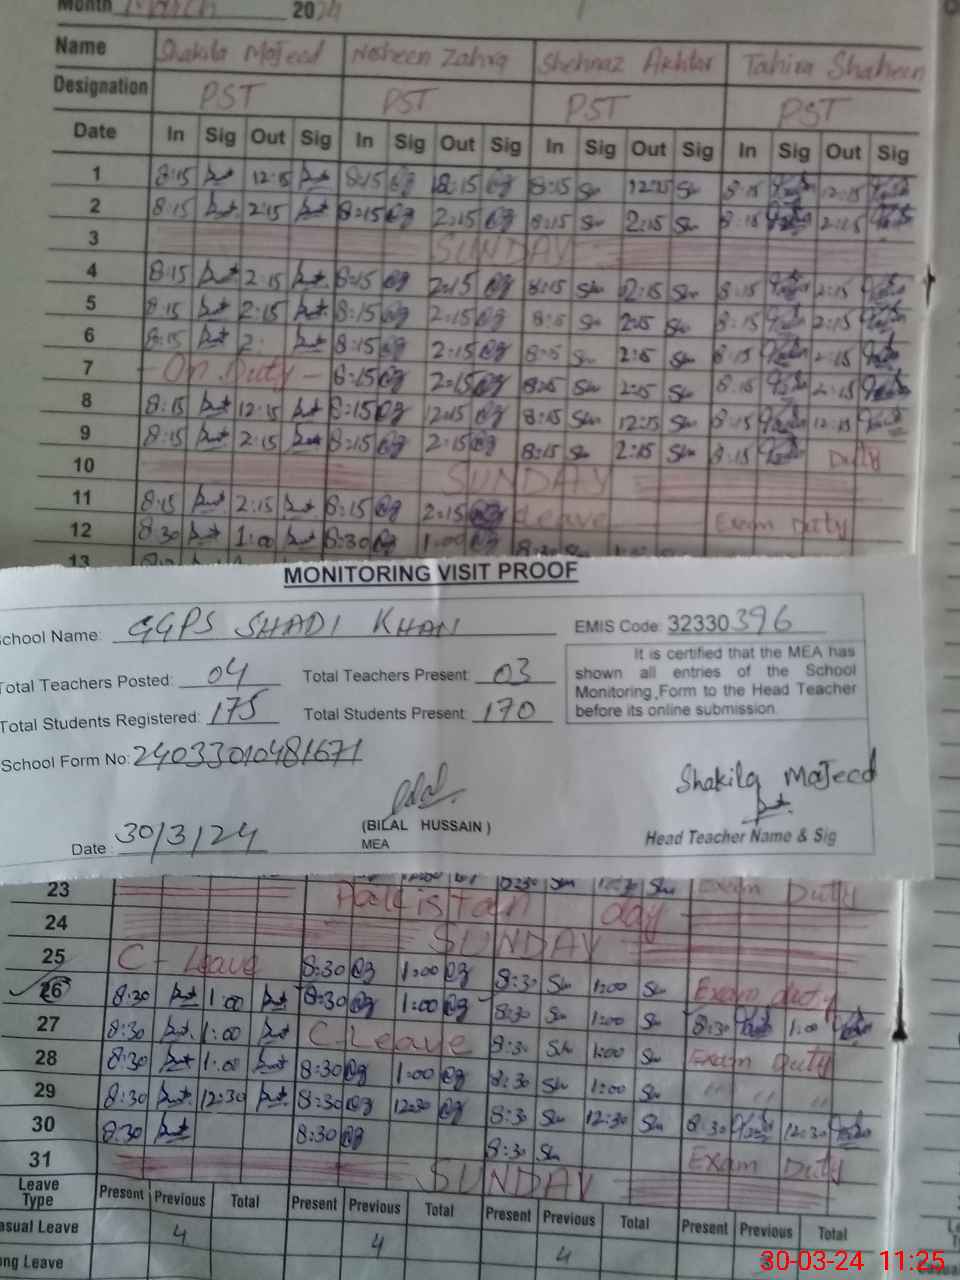 Month March 2024
Name Shakila Majeed Nosheen Zahra Shehnaz Akhtar Tahira Shaheen
Designation PST PST PST PST
Date In Sig Out Sig In Sig Out Sig In Sig Out Sig In Sig Out Sig
1 8:15 12:15 8:15 12:15 8:15 12:15 8:15 12:15
2 8:15 2:15 8:15 2:15 8:15 2:15 8:15 2:15
3 SUNDAY
4 8:15 2:15 8:15 2:15 8:15 2:15 8:15 2:15
5 8:15 2:15 8:15 2:15 2:15 8:15 2:15
6 8:15 2: 8:15 2:15 2:15 8:15 2:15
7 - On Duty - 8:15 2:15 2:15 8:15 2:15
8 8:15 12:15 8:15 12:15 8:15 12:15 8:15 12:15
9 8:15 2:15 8:15 2:15 8:15 2:15 8:15 Duty
10 SUNDAY
11 8:15 2:15 8:15 2:15 Leave Exam Duty
12 8:30 1:00 8:30 1:00 8:30
13
MONITORING VISIT PROOF
School Name: GGPS SHADI KHAN EMIS Code: 32330396
It is certified that the MEA has
shown all entries of the School
Monitoring,Form to the Head Teacher
before its online submission.
Total Teachers Posted: 04 Total Teachers Present: 03
Total Students Registered: 175 Total Students Present: 170
School Form No: 24033010481671
Shakila Majeed
(BILAL HUSSAIN )
MEA
Head Teacher Name & Sig
Date : 30/3/24
23 Pakistan day Exam Duty
24 SUNDAY
25 C-Leave 8:30 1:00 8:30 1:00 Exam duty
26 8:30 1:00 8:30 1:00 8:30 1:00 8:30 1:00
27 8:30 1:00 C.Leave 8:30 1:00 Exam Duty
28 8:30 1:00 8:30 1:00 8:30 1:00 " " "
29 8:30 12:30 8:30 12:30 8:30 12:30 8:30 12:30
30 8:30 8:30 8:30 Exam Duty
31 SUNDAY
Leave Type Present Previous Total Present Previous Total Present Previous Total Present Previous Total
asual Leave 4 4 4
ong Leave
30-03-24 11:25